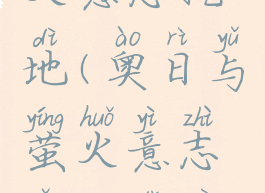 dì ào rì yǔ
地(奥日与
yíng huǒ yì zhì
萤火意志